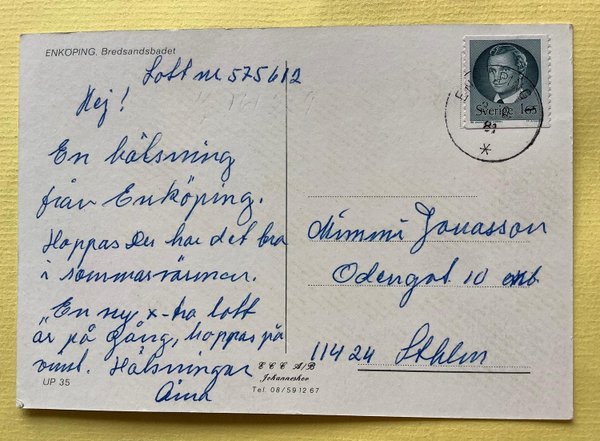 ENKÖPING. Bredsandsbadet
Lott nr 575612
Hej!
En hälsning
från Enköping.
Hoppas Du har det bra
i sommarvärmen.
"En ny x-tra lott
är på gång, hoppas på
vinst. Hälsningar
Aina
UP 35
Sverige 165
81
Mimmi Jonasson
Odengat 10
11424 Sthlm
E C C A/B
Johanneshov
Tel. 08/59 12 67